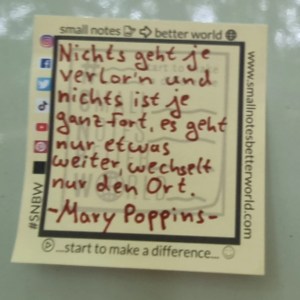 small notes better world
Nichts geht je
verlor'n und
nichts ist je
ganz fort, es geht
nur etwas
weiter wechselt
nur den Ort.
-Mary Poppins-
...start to make a difference...
#SNBW
www.smallnotesbetterworld.com